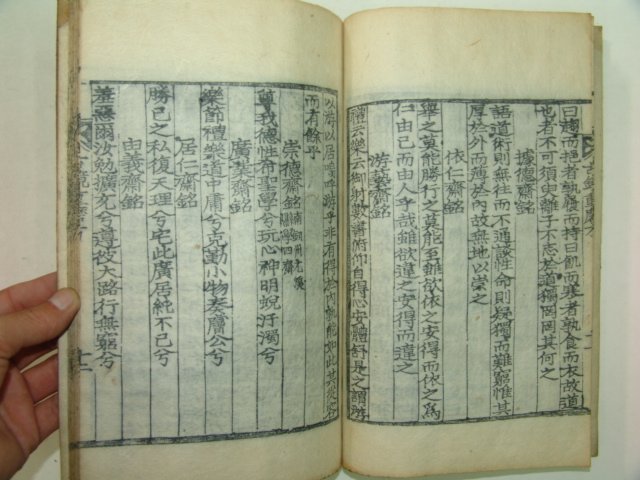 曰趨而挹者孰履而持曰飢而寒者孰食而衣故道
也者不可須臾離子不志於道獨罔罔其何之
據德齋銘
語道術則無往而不通談性命則疑獨而難窮惟其
厚於外而薄於內故無地以崇之
依仁齋銘
舉之莫能勝行之莫能至雖欲依之安得而依之爲
仁由己而由人乎哉雖欲違之安得而違之
游藝齋銘
禮云樂云御射數書俯仰自得心安體舒是之謂游
以游以居嗚呼游乎非有得於內孰能如此其從容
而有餘乎
崇德齋銘
尊我德性希聖學兮玩心神明蛻汙濁兮
廣業齋銘
樂節禮樂道中庸兮克勤小物奏膚公兮
居仁齋銘
勝己之私復天理兮宅此廣居純不已兮
由義齋銘
羞惡爾汝勉擴充兮遵彼大路行無窮兮
十二